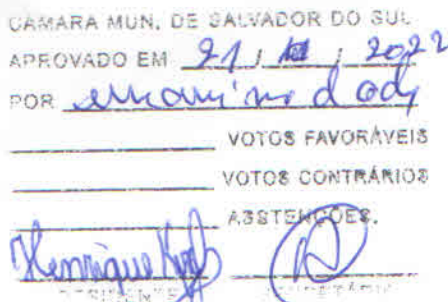 CÂMARA MUN. DE SALVADOR DO SUL
APROVADO EM 21 / / 2022
POR unanimidade
VOTOS FAVORÁVEIS
VOTOS CONTRÁRIOS
ABSTENÇÕES.
Henrique
PRESIDENTE SECRETÁRIO